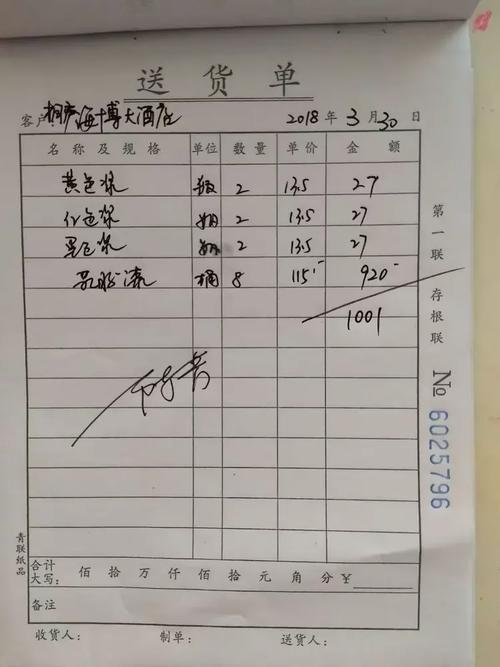 送货单
客户 桐庐海博大酒店 2018 年 3 月 30 日
名称及规格 单位 数量 单价 金额
黄色漆 2 13.5 27
红色漆 2 13.5 27
黑色漆 2 13.5 27
漆 桶 8 115 920
1001
合计大写: 佰 拾 万 仟 佰 拾 元 角 分 ¥
备注
收货人: 制单: 送货人:
第一联 存根联
№ 6025796
青联纸品